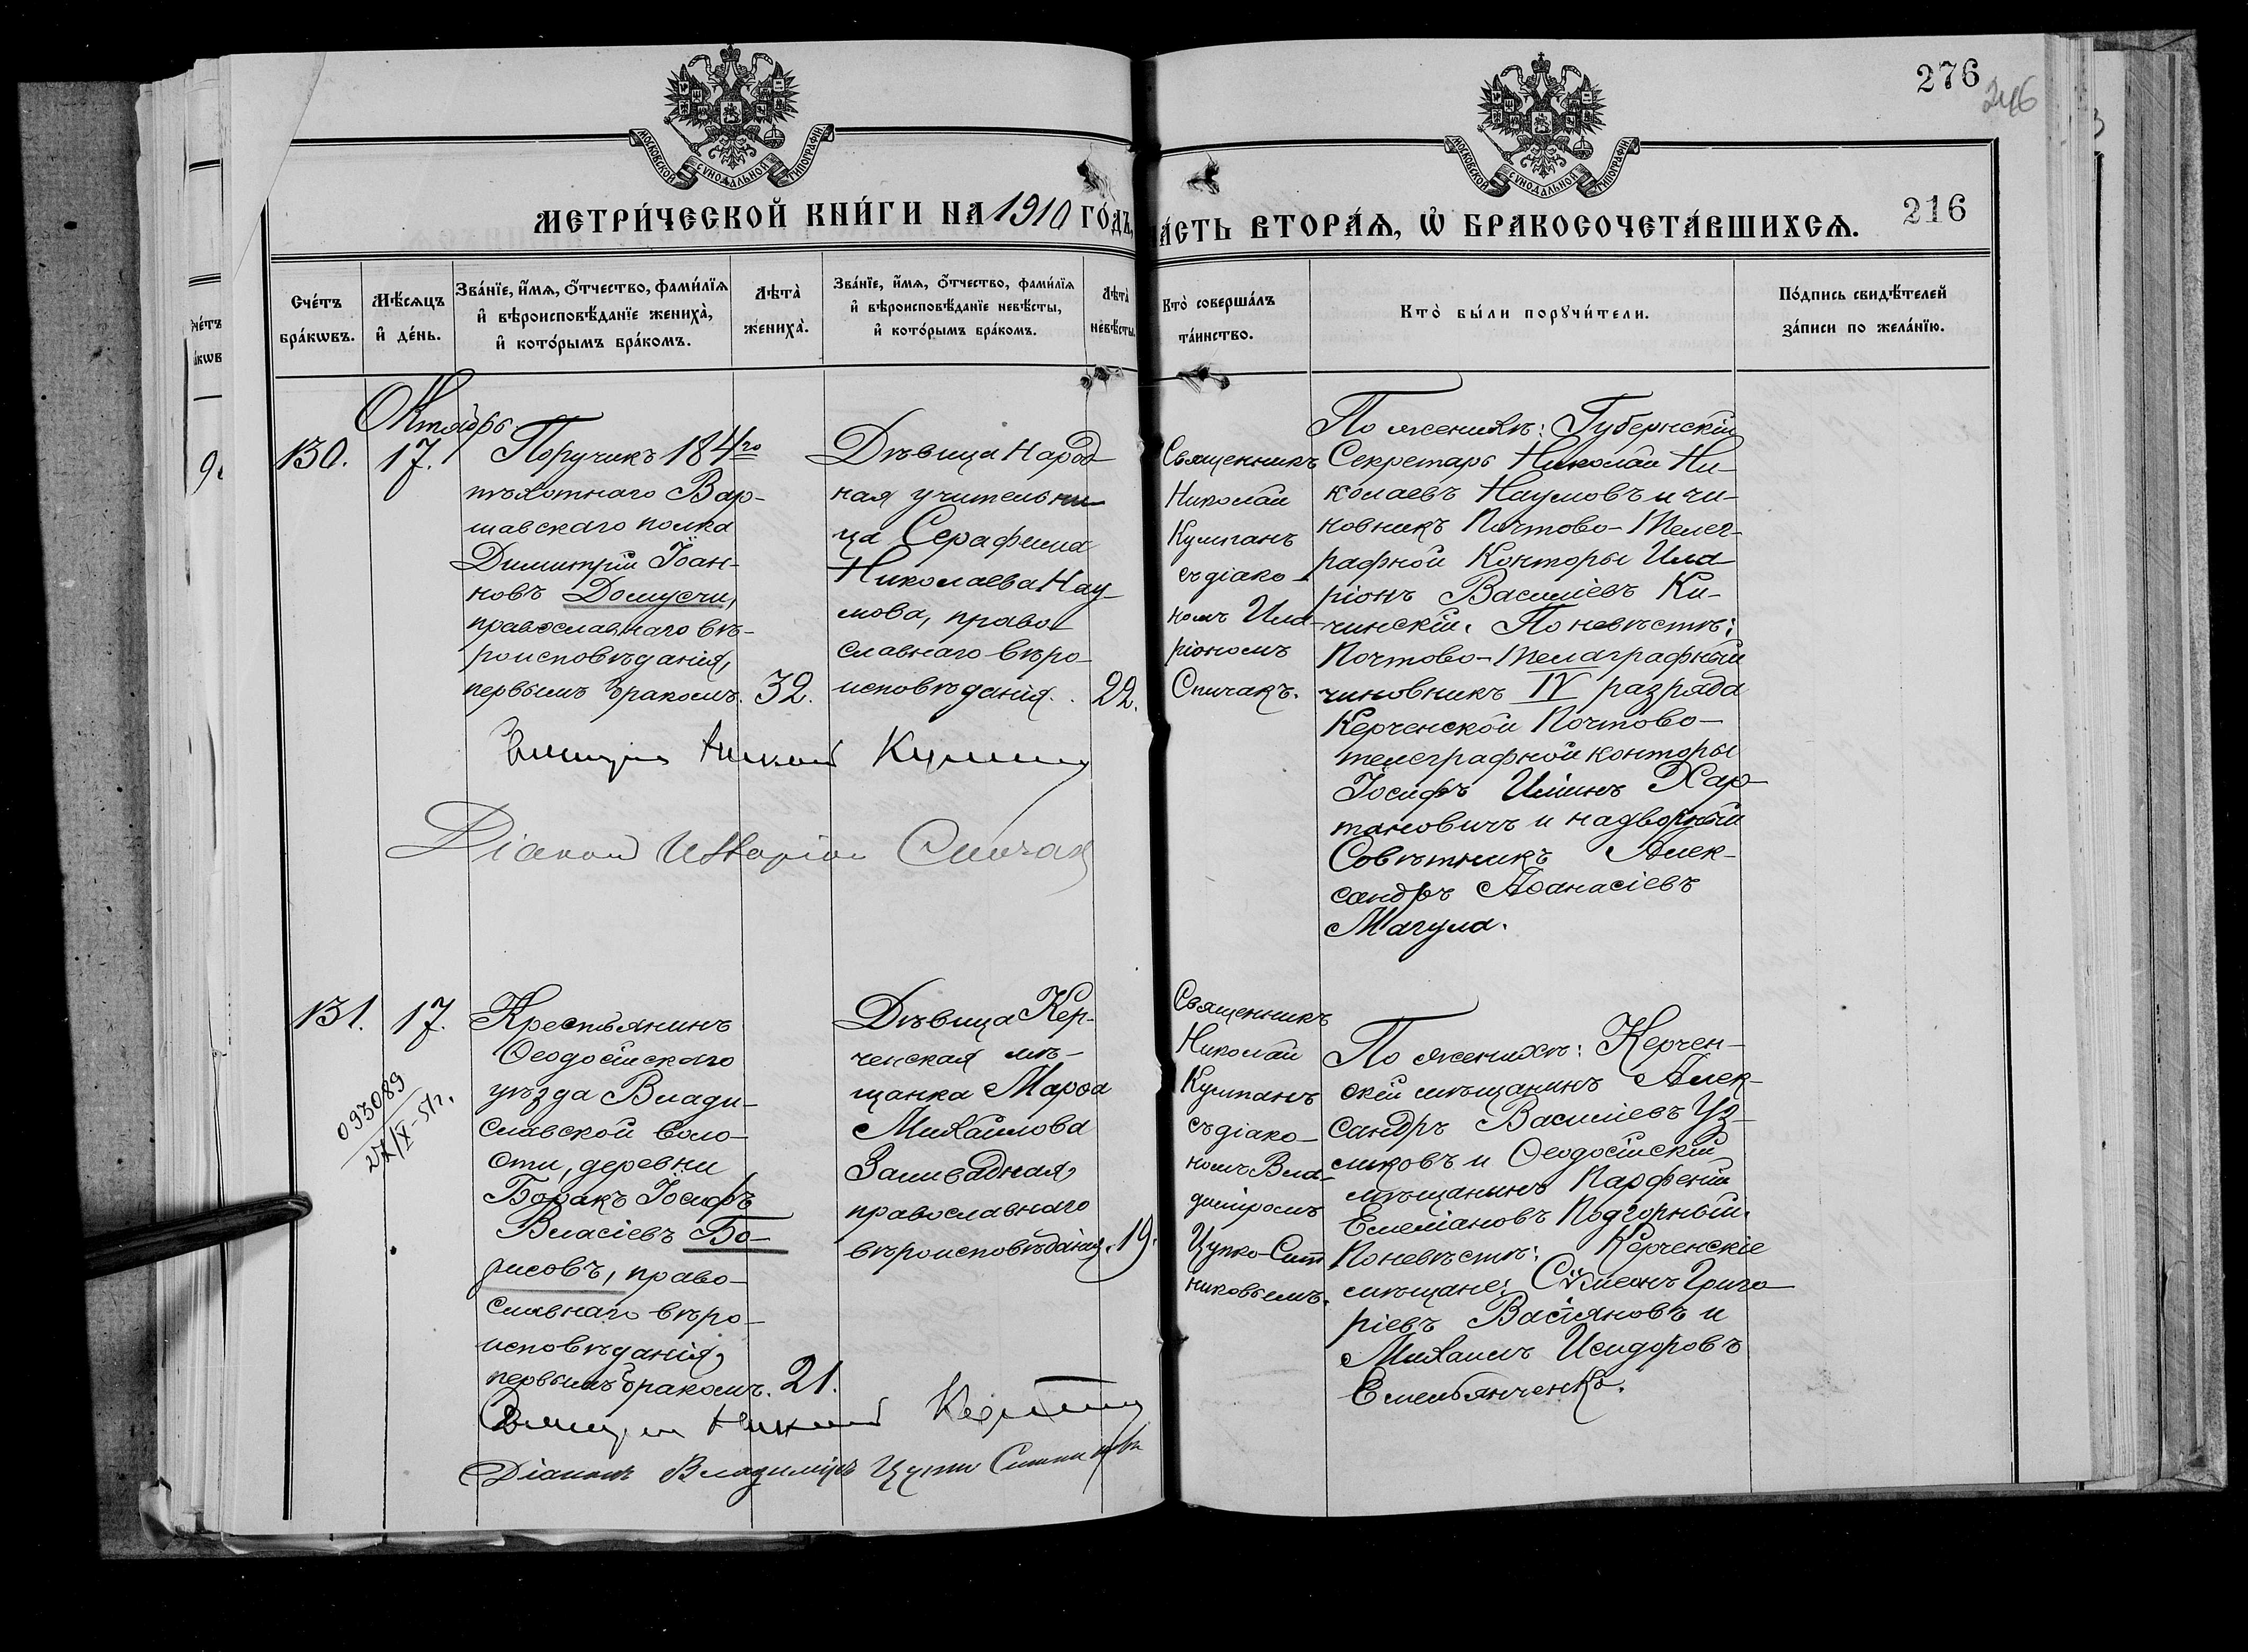 276
246
МОСКОВСКОЙ СѴНОДАЛЬНОЙ ТИПОГРАФІИ
МОСКОВСКОЙ СѴНОДАЛЬНОЙ ТИПОГРАФІИ
МЕТРИ́ЧЕСКОЙ КНИ́ГИ НА 1910 ГО́ДЪ,
ЧА́СТЬ ВТОРА́Ѧ, Ѡ҆ БРАКОСОЧЕТА́ВШИХСѦ.
216
Сче́тъ
бра́кѡвъ.
Мѣ́сѧцъ
и҆ де́нь.
Зва́нїе, и҆́мѧ, ѻ҆́тчество, фами́лїѧ
и҆ вѣроисповѣ́данїе жениха̀,
и҆ кото́рымъ бра́комъ.
Лѣта̀
жениха̀.
Зва́нїе, и҆́мѧ, ѻ҆́тчество, фами́лїѧ
и҆ вѣроисповѣ́данїе невѣ́сты,
и҆ кото́рымъ бра́комъ.
Лѣта̀
невѣ́сты.
Кто̀ соверша́лъ
та́инство.
Кто̀ бы́ли порꙋчи́тели.
По́дпись свидѣ́телей
за́писи по жела́нїю.
Октябрь
130.
17.
Поручикъ 184го
пѣхотнаго Вар-
шавскаго полка
Димитрій Іоан-
новъ Домусчи,
православнаго вѣ-
роисповѣданія,
первымъ бракомъ.
32.
Дѣвица Народ-
ная учительни-
ца Серафима
Николаева Нау-
мова, право-
славнаго вѣро-
исповѣданія.
22.
Священникъ
Николай
Кумпанъ
съ діако-
номъ Ила-
ріономъ
Спичакъ.
По женихѣ: Губернскій
Секретарь Николай Ни-
колаевъ Наумовъ и чи-
новникъ Почтово-Телег-
рафной Конторы Ила-
ріонъ Василіевъ Ки-
чинскій. По невѣстѣ:
Почтово-телаграфный
чиновникъ IV разряда
Керченской Почтово-
телеграфной конторы
Іосифъ Иліинъ Хар-
тановичъ и надворный
Совѣтникъ Алек-
сандръ Аѳанасіевъ
Магула.
Священникъ Николай Кумпанъ
Діаконъ Иларіон Спичак
131.
17.
093089
27/X-51г.
Крестьянинъ
Ѳеодосійскаго
уѣзда Влади-
славской воло-
сти, деревни
Боракъ Іосифъ
Власіевъ Бо-
рисовъ, право-
славнаго вѣро-
исповѣданія,
первымъ бракомъ.
21.
Дѣвица Кер-
ченская мѣ-
щанка Марѳа
Михайлова
Заливадная,
православнаго
вѣроисповѣданія.
19.
Священникъ
Николай
Кумпанъ
съ діако-
номъ Вла-
диміромъ
Цупко-Сит-
никовымъ.
По женихѣ: Керчен-
скій мѣщанинъ Алек-
сандръ Василіевъ Уз-
ликовъ и Ѳеодосійскій
мѣщанинъ Парфеній
Емеліановъ Подгорный.
По невѣстѣ: Керченскіе
мѣщане: Сѵмеонъ Григо-
ріевъ Васіяновъ и
Михаилъ Исидоровъ
Емельянченко.
Священникъ Николай Кумпанъ
Діаконъ Владиміръ Цупко Ситниковъ